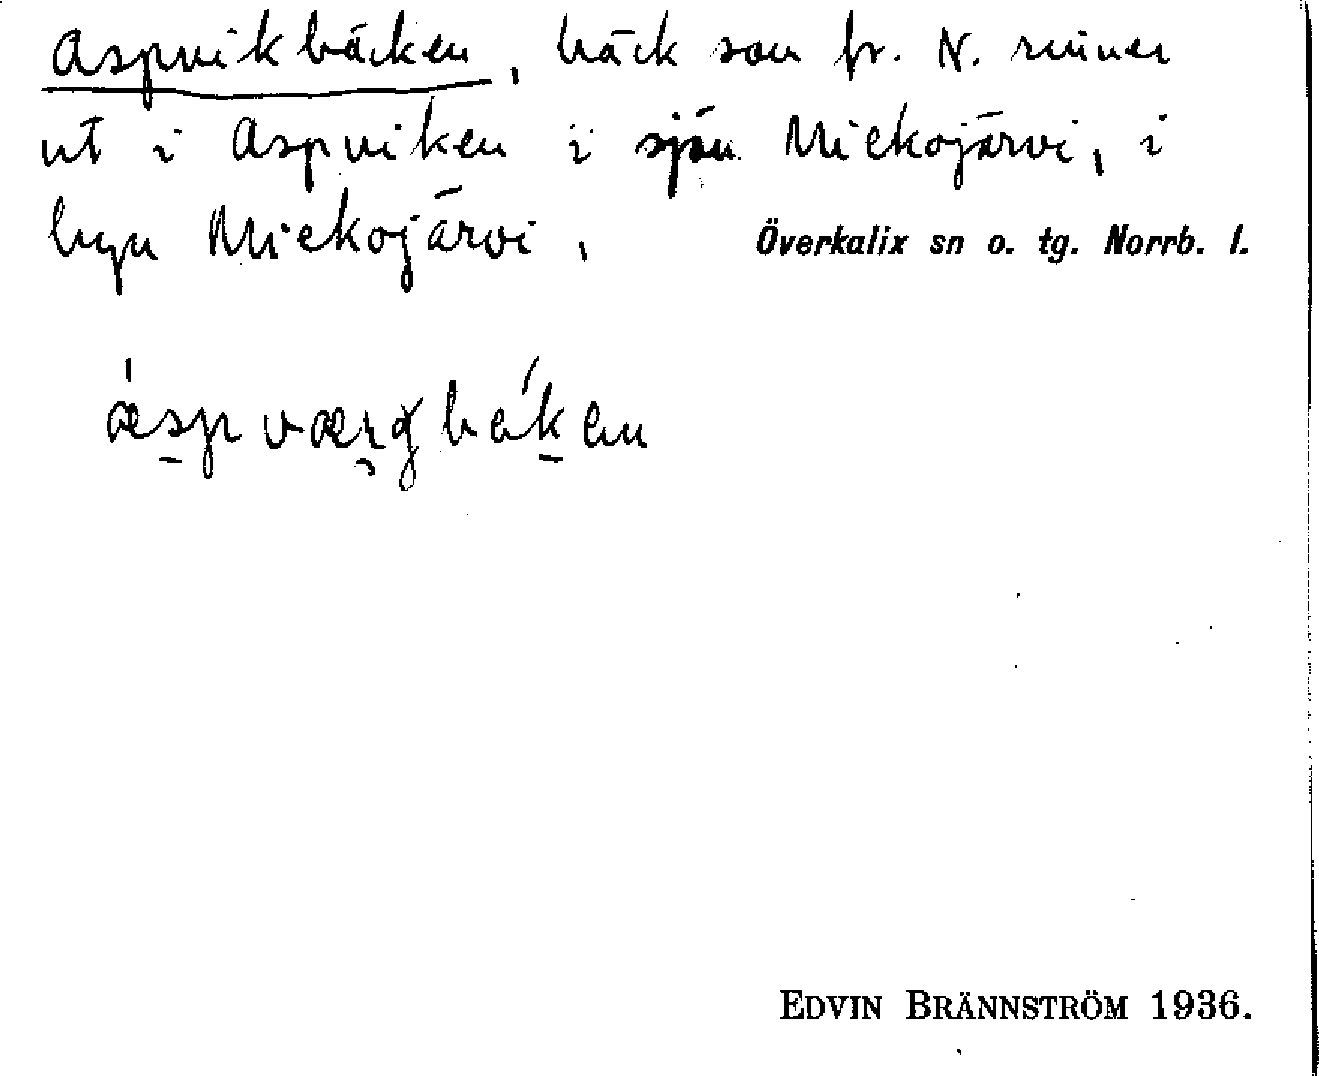 Aspvikbäcken, bäck som fr. N. rinner
ut i Aspviken i sjön Miekojärvi, i
byn Miekojärvi, Överkalix sn o. tg. Norrb. l.
EDVIN BRÄNNSTRÖM 1936.